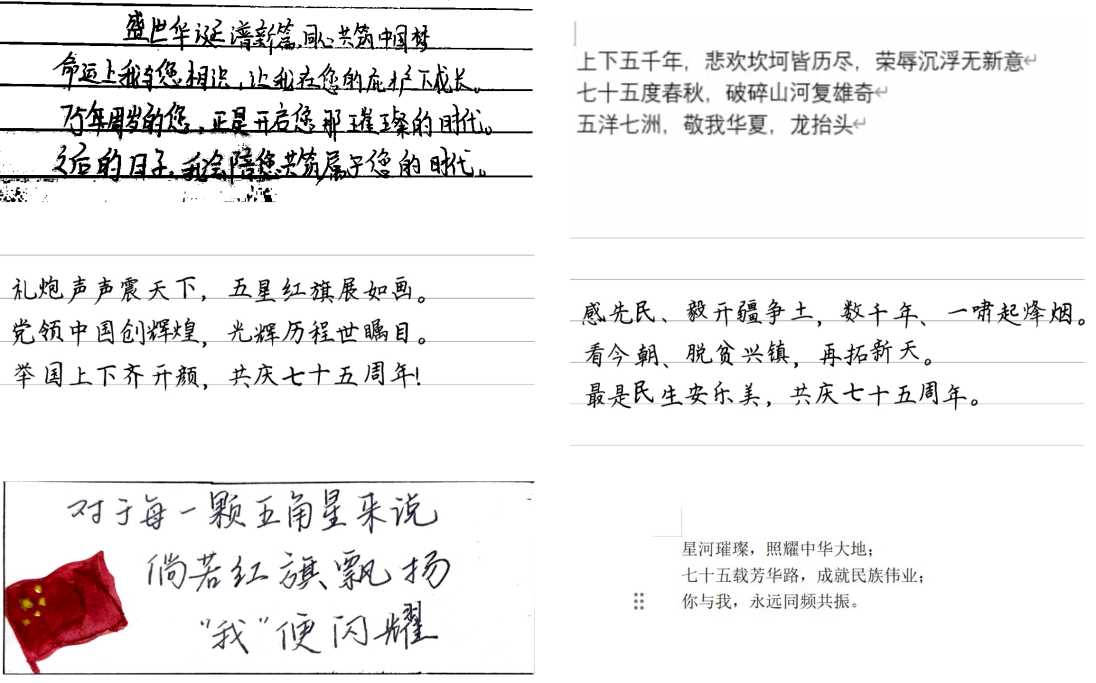 盛世华诞谱新篇,同心共筑中国梦
命运上我与您相识,让我在您的庇护下成长。
75年周岁的您,正是开启您那璀璨的时代。
之后的日子,我会陪您共筑属于您的时代。
上下五千年，悲欢坎坷皆历尽，荣辱沉浮无新意
七十五度春秋，破碎山河复雄奇
五洋七洲，敬我华夏，龙抬头
礼炮声声震天下，五星红旗展如画。
党领中国创辉煌，光辉历程世瞩目。
举国上下齐开颜，共庆七十五周年!
感先民、毅开疆争土，数千年、一啸起烽烟。
看今朝、脱贫兴镇，再拓新天。
最是民生安乐美，共庆七十五周年。
对于每一颗五角星来说
倘若红旗飘扬
“我”便闪耀
星河璀璨，照耀中华大地；
七十五载芳华路，成就民族伟业；
你与我，永远同频共振。